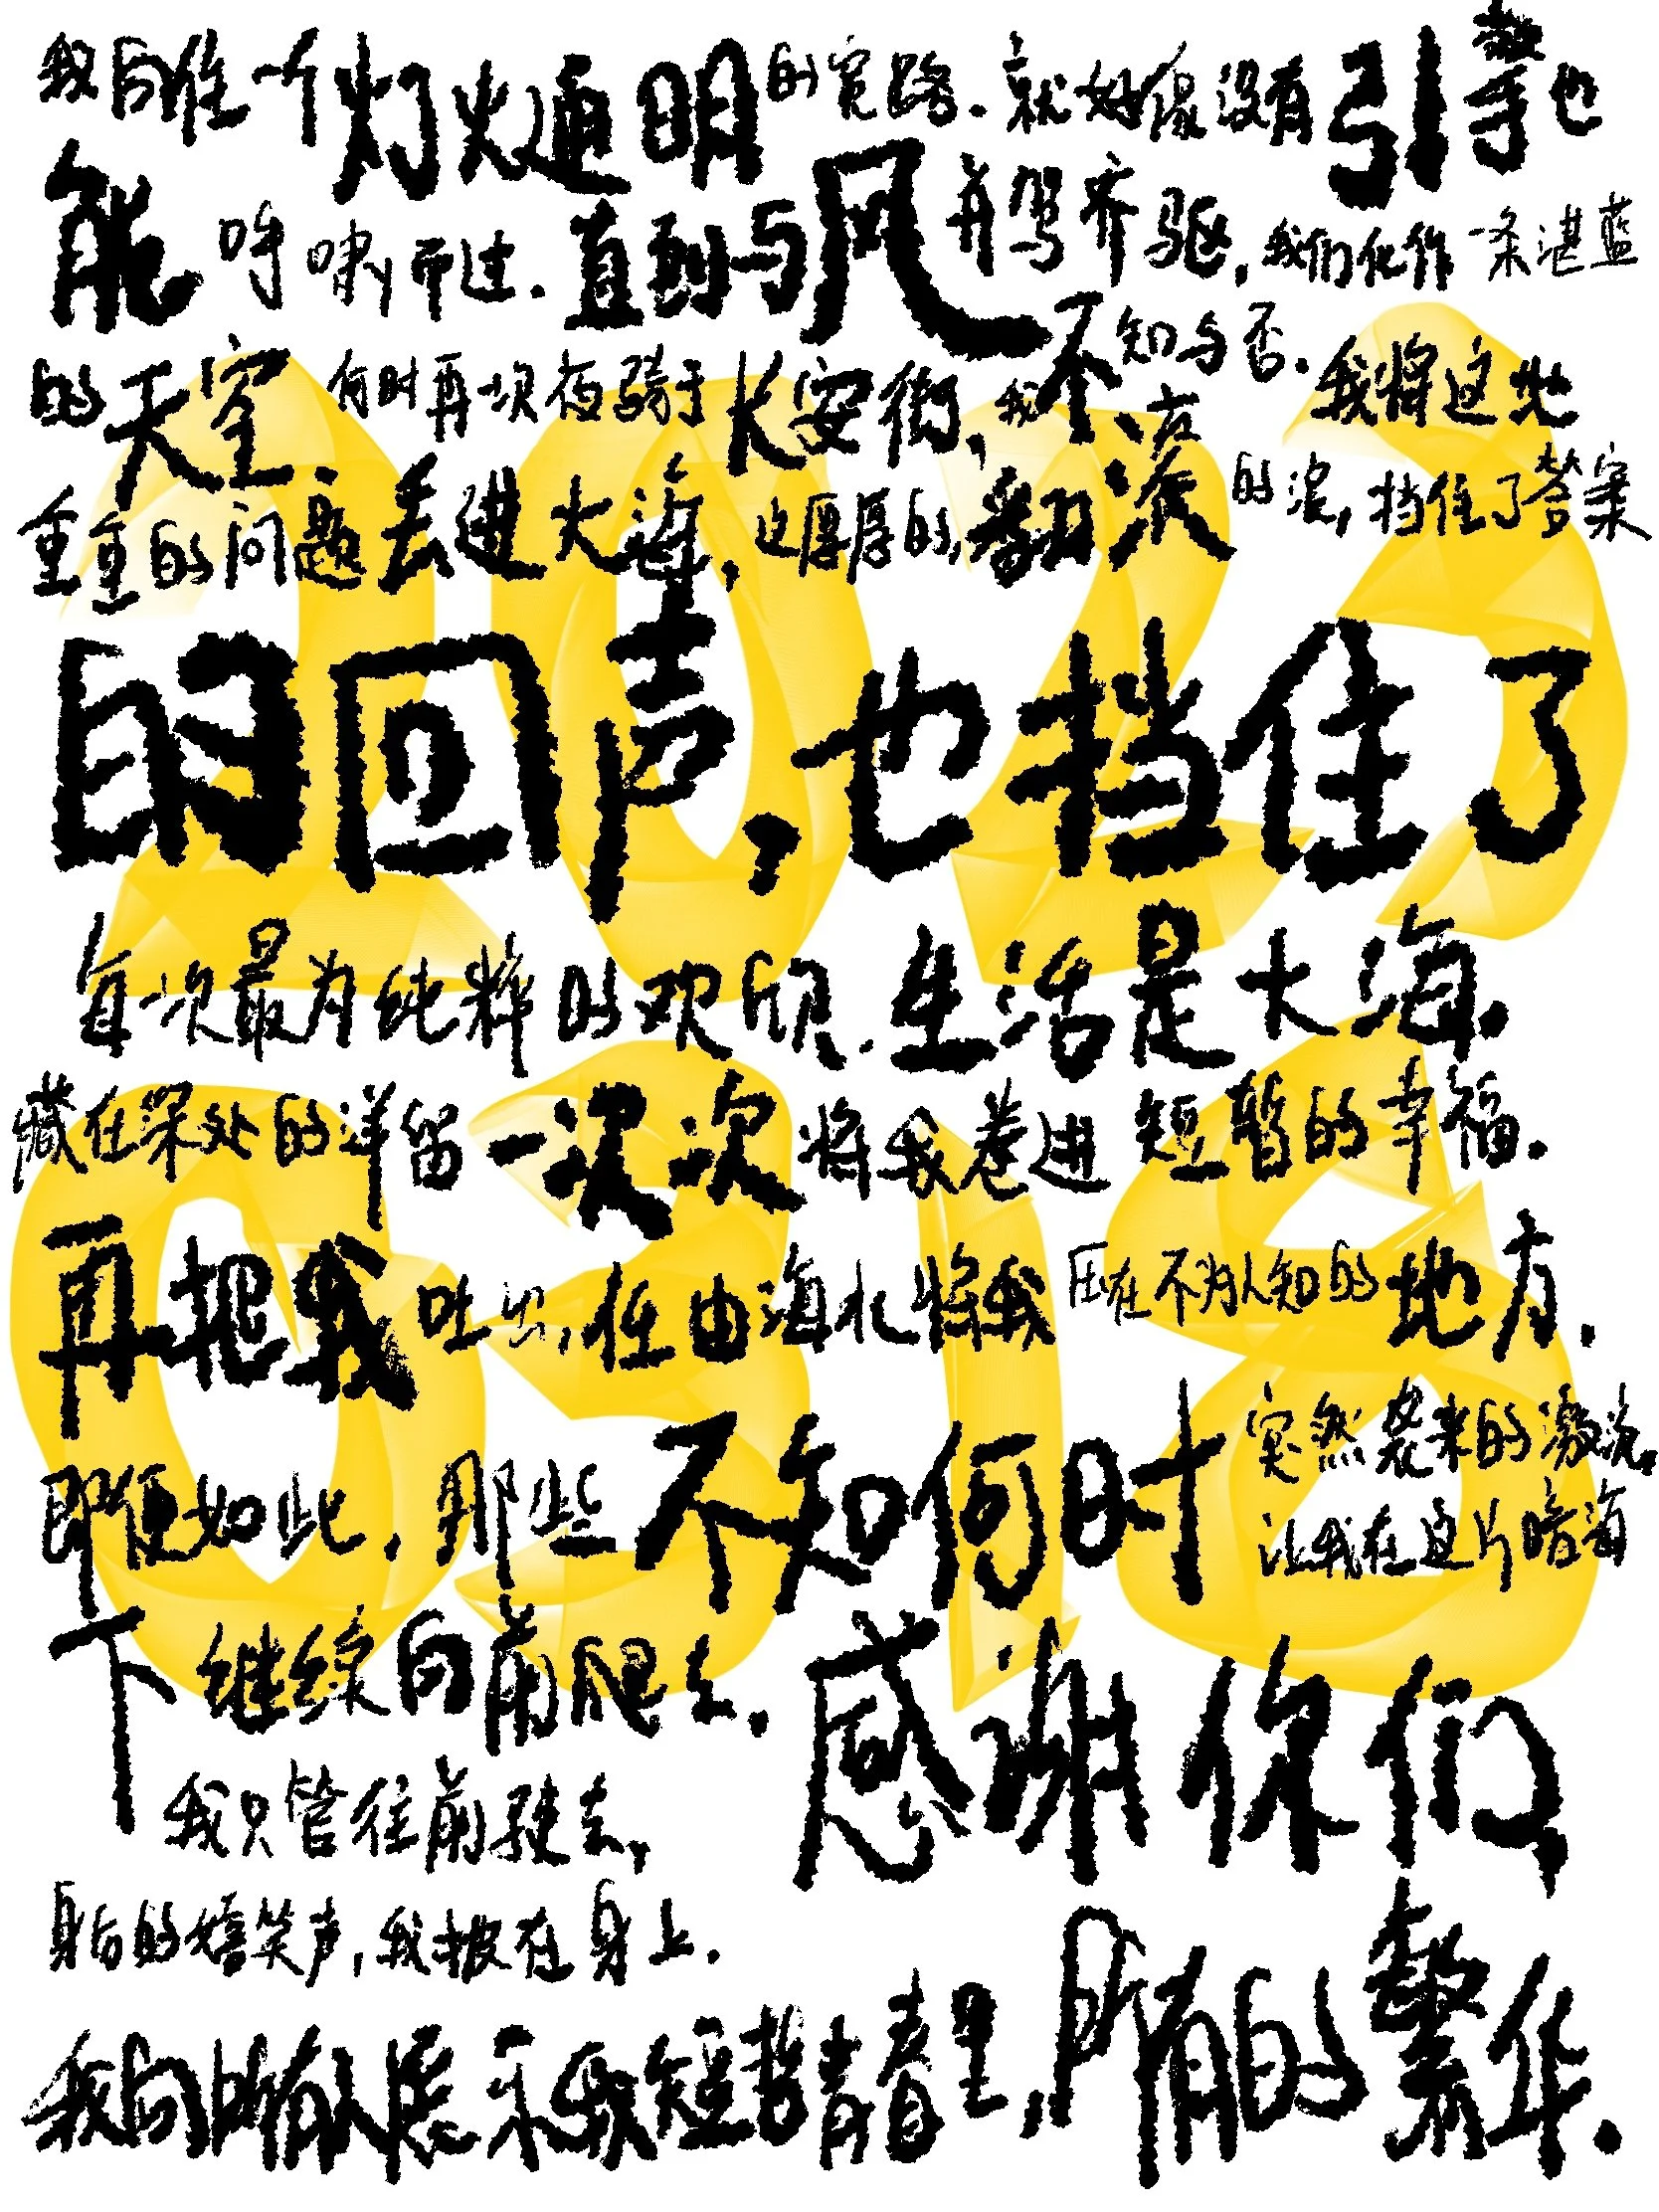 我向往一个灯火通明的宽路.就好像没有引擎也
能呼啸而过.直到与风并驾齐驱,我们化作一条湛蓝
的天空.何时再次夜骑于长安街,我不知与否.我将这些
重重的问题丢进大海,这厚厚的,翻滚的浪,挡住了答案
的回声,也挡住了
每次最为纯粹的欢欣.生活是大海.
藏在深处的洋留一次次将我卷进短暂的幸福.
再把我吐出,任由海水将我压在不为人知的地方.
即便如此,那些不知何时突然袭来的激流.
让我在这片暗海
下继续向前爬去.感谢你们,
我只管往前驶去,
身后的嬉笑声,我披在身上.
我向所有人展示我短暂青春里,所有的繁华.
2023
0318